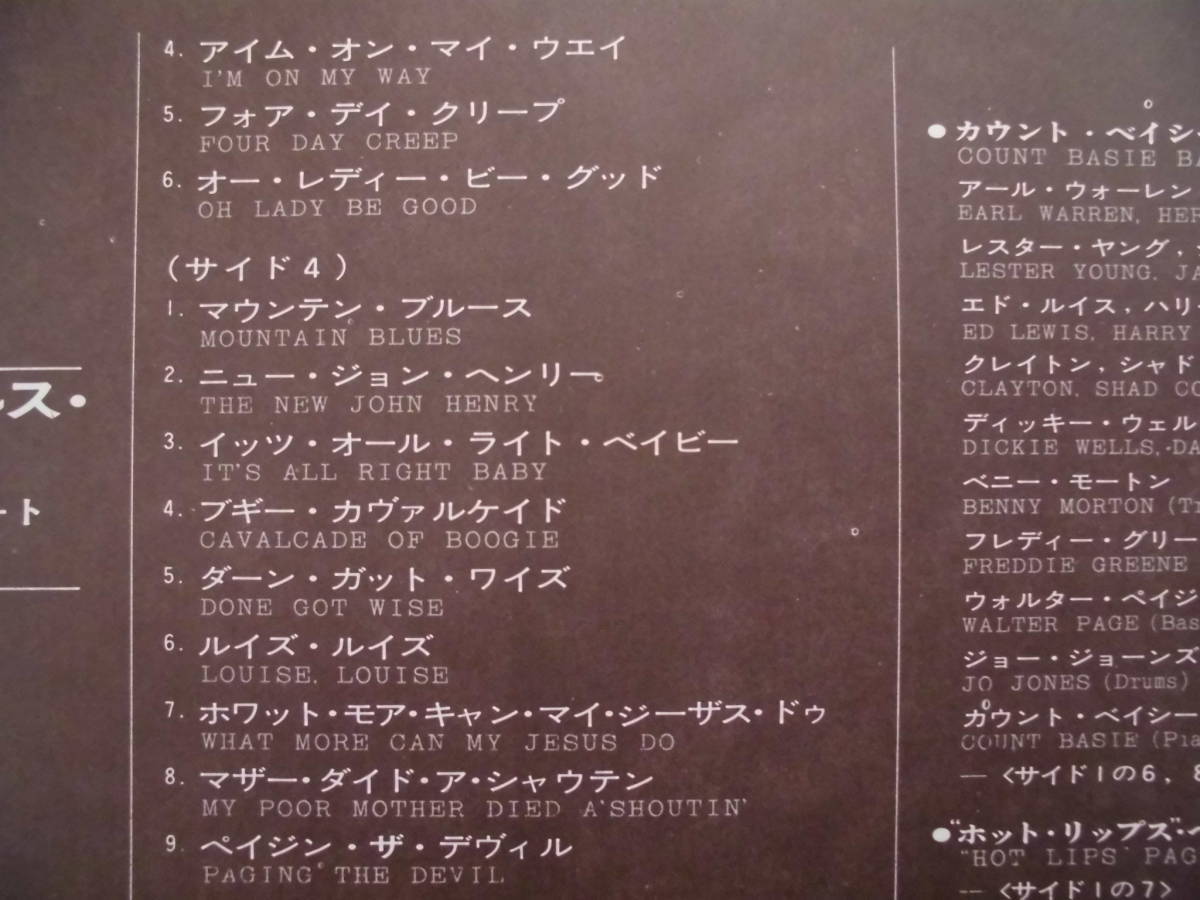 ルス・
ート
4. アイム・オン・マイ・ウエイ
I'M ON MY WAY
5. フォア・デイ・クリープ
FOUR DAY CREEP
6. オー・レディー・ビー・グッド
OH LADY BE GOOD
(サイド4)
1. マウンテン・ブルース
MOUNTAIN BLUES
2. ニュー・ジョン・ヘンリー
THE NEW JOHN HENRY
3. イッツ・オール・ライト・ベイビー
IT'S ALL RIGHT BABY
4. ブギー・カヴァルケイド
CAVALCADE OF BOOGIE
5. ダーン・ガット・ワイズ
DONE GOT WISE
6. ルイズ・ルイズ
LOUISE, LOUISE
7. ホワット・モア・キャン・マイ・ジーザス・ドゥ
WHAT MORE CAN MY JESUS DO
8. マザー・ダイド・ア・シャウテン
MY POOR MOTHER DIED A'SHOUTIN'
9. ペイジン・ザ・デヴィル
PAGING THE DEVIL
●カウント・ベイシー
COUNT BASIE BA
アール・ウォーレン
EARL WARREN, HER
レスター・ヤング,
LESTER YOUNG, JA
エド・ルイス, ハリー
ED LEWIS, HARRY
クレイトン, シャド
CLAYTON, SHAD CO
ディッキー・ウェル
DICKIE WELLS, DA
ベニー・モートン
BENNY MORTON (Tr
フレディー・グリー
FREDDIE GREENE
ウォルター・ペイジ
WALTER PAGE (Bas
ジョー・ジョーンズ
JO JONES (Drums)
カウント・ベイシー
COUNT BASIE (Pia
― <サイド1の6, 8
●"ホット・リップス"・
"HOT LIPS" PAG
― <サイド1の7>